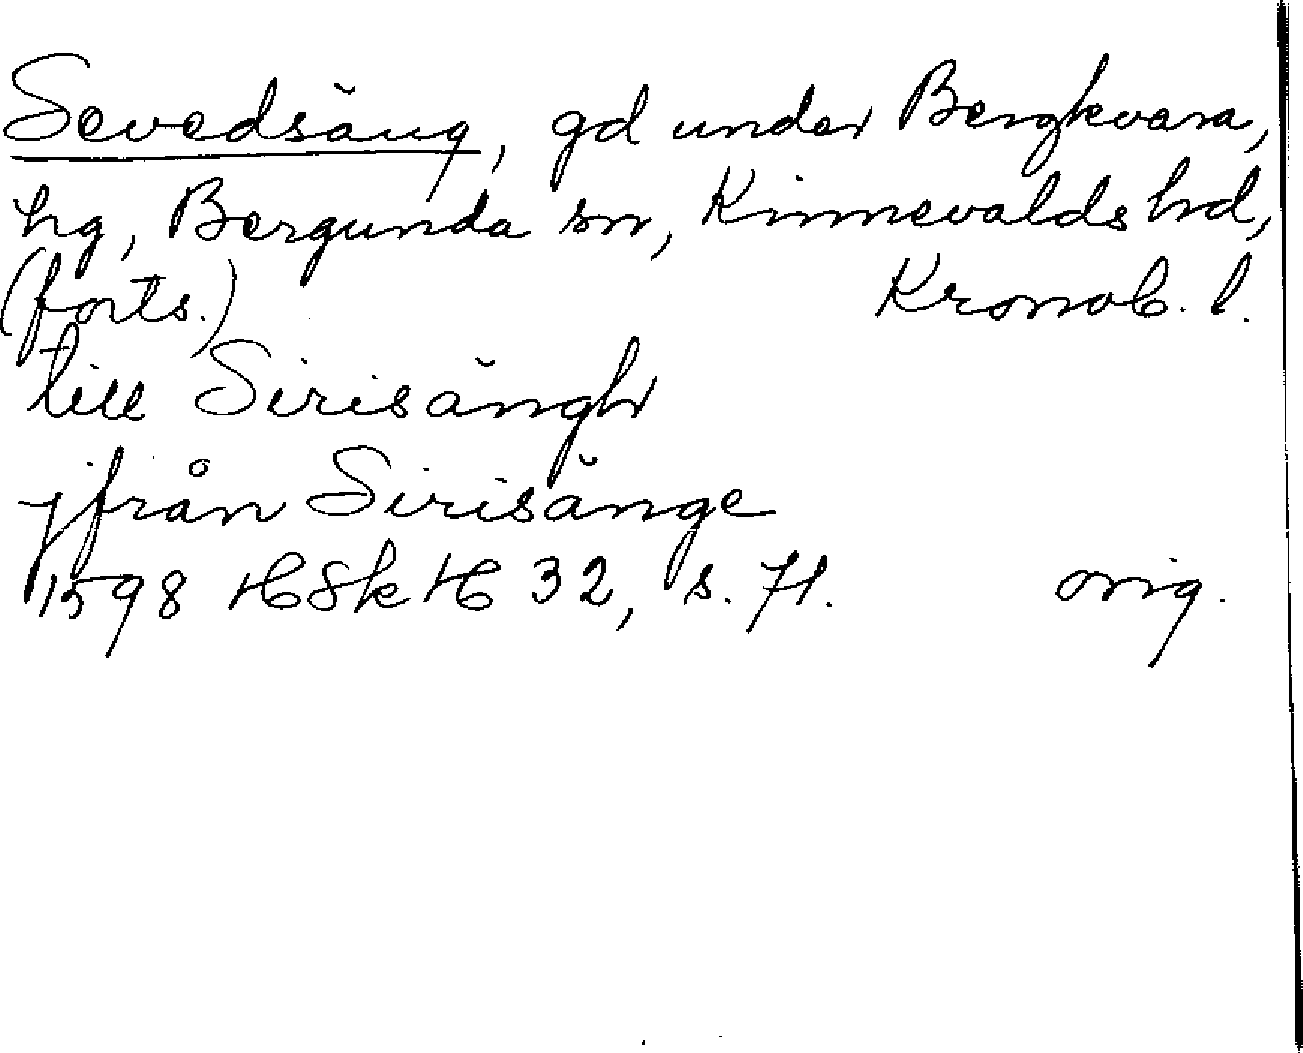 Sevedsäng, gd under Bergkvara,
hg, Bergunda sn, Kinnevalds hd,
(forts.) Kronob. l.
till Sirisängh
jfrån Sirisänge
1598 HSkH 32, s. 71. orig.